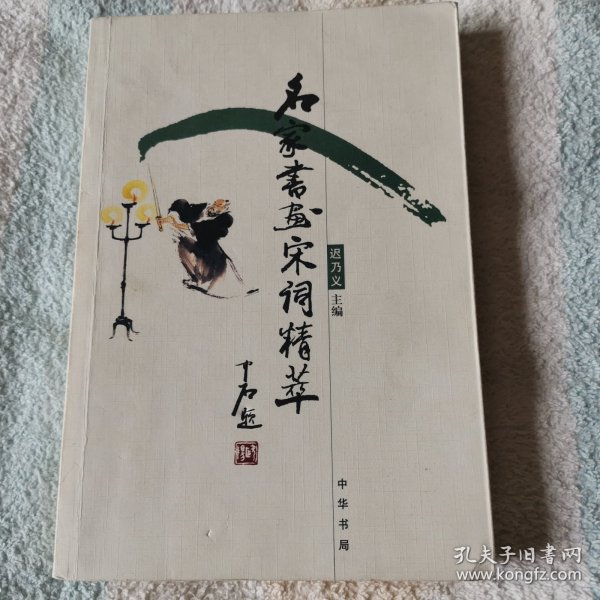 名家書画宋词精萃
迟乃义
主编
中石题
中华书局
孔夫子旧書网
www.kongfz.com